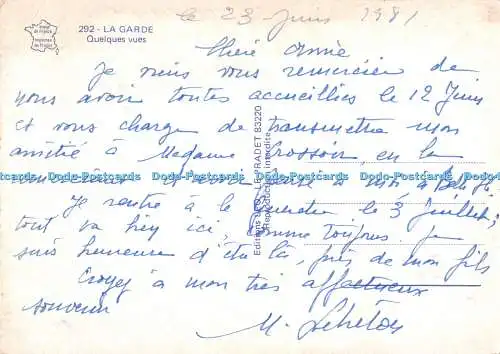 292 - LA GARDE
Quelques vues
le 23 Juin 1981
Chère Année
Je viens vous remercier de
nous avoir toutes accueillies le 12 Juin
et vous charge de transmettre mon
amitié à Madame en la
remerciant d'avoir pensé à moi, à
Je rentre à le 3 Juillet;
tout va bien ici, comme toujours je
suis heureuse d'être là, près de mon fils
Croyez à mon très affectueux
souvenir
M. Lebreton
Editions LE PRADET 83220
Reproduction interdite
Dodo-Postcards Dodo-Postcards Dodo-Postcards Dodo-Postcards Dodo-Postcards Dodo-Postcards